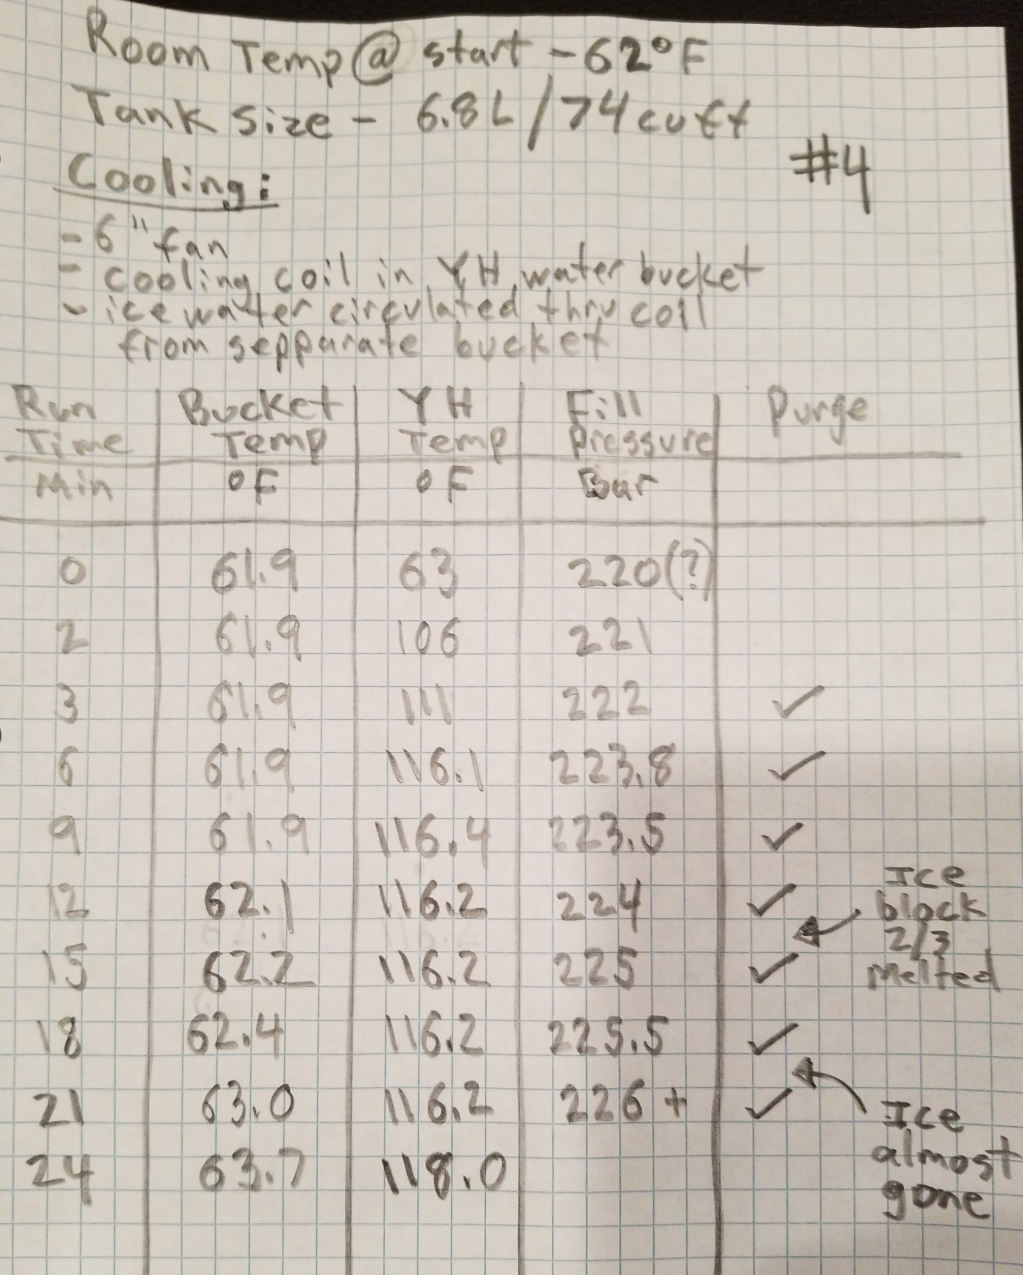 Room Temp @ start - 62°F
Tank size - 6.8L/74cuft
#4
Cooling:
- 6" fan
- cooling coil in YH water bucket
- ice water circulated thru coil
from sepparate bucket
Run Time Bucket Temp YH Temp Fill Pressure Purge
Min °F °F Bar
0 61.9 63 220(?)
2 61.9 106 221
3 61.9 111 222 ✓
6 61.9 116.1 223.8 ✓
9 61.9 116.4 223.5 ✓
12 62.1 116.2 224 ✓
Ice block 2/3 melted
15 62.2 116.2 225 ✓
18 62.4 116.2 225.5 ✓
21 63.0 116.2 226+ ✓
Ice almost gone
24 63.7 118.0